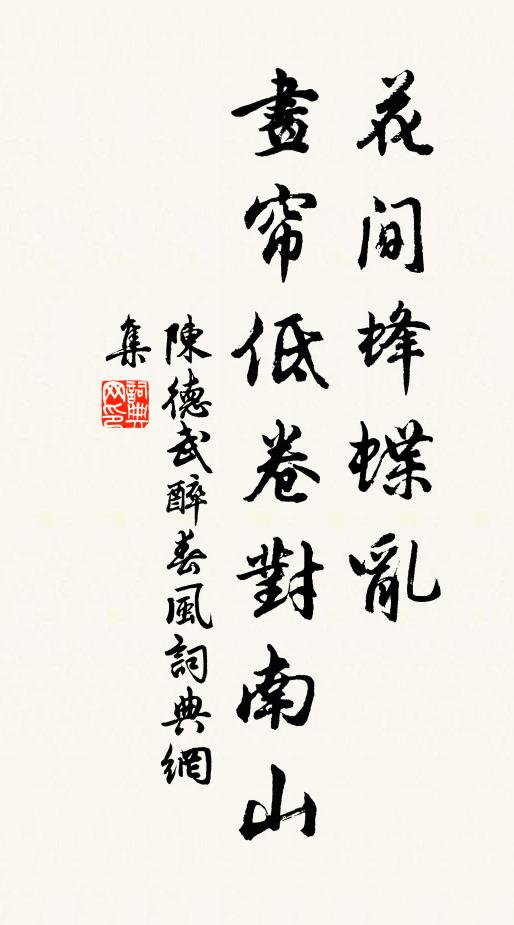 花間蜂蝶亂
畫帘低卷對南山
陳德武醉春風詞典網
集
詞典
网印